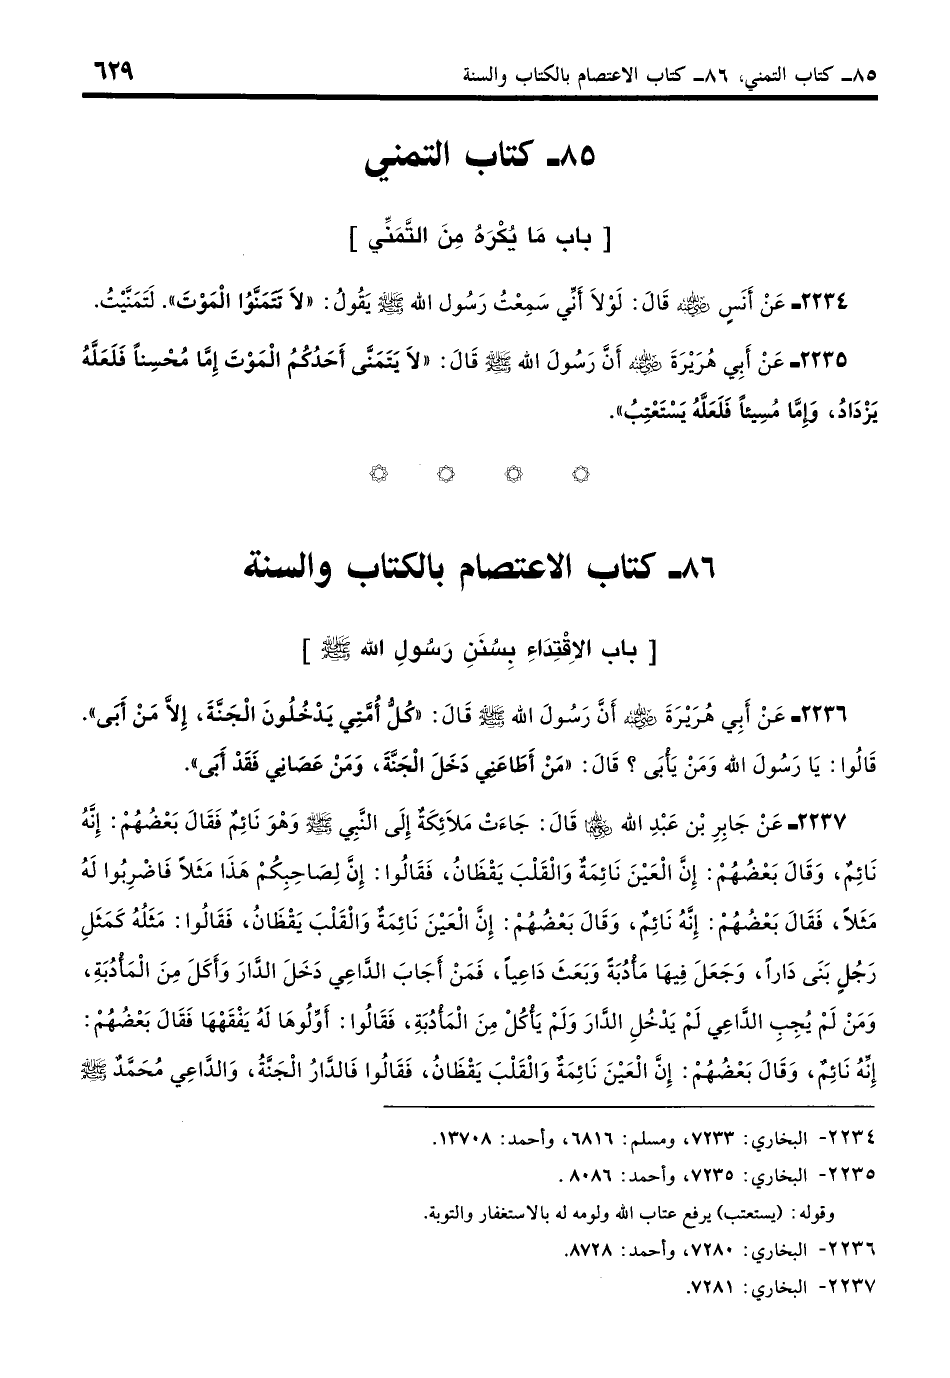 ٨٥ـ كتاب التمني، ٨٦ـ كتاب الاعتصام بالكتاب والسنة ٦٢٩
٨٥ـ كتاب التمني
[ باب مَا يُكْرَهُ مِنَ التَّمَنِّي ]
٢٢٣٤ـ عَنْ أَنَسٍ رضي الله عنه قَالَ: لَوْلاَ أَنِّي سَمِعْتُ رَسُولَ الله ﷺ يَقُولُ: «لاَ تَتَمَنَّوُا الْمَوْتَ». لَتَمَنَّيْتُ.
٢٢٣٥ـ عَنْ أَبِي هُرَيْرَةَ رضي الله عنه أَنَّ رَسُولَ الله ﷺ قَالَ: «لاَ يَتَمَنَّى أَحَدُكُمُ الْمَوْتَ إِمَّا مُحْسِناً فَلَعَلَّهُ
يَزْدَادُ، وَإِمَّا مُسِيئاً فَلَعَلَّهُ يَسْتَعْتِبُ».
٨٦ـ كتاب الاعتصام بالكتاب والسنة
[ باب الاِقْتِدَاءِ بِسُنَنِ رَسُولِ الله ﷺ ]
٢٢٣٦ـ عَنْ أَبِي هُرَيْرَةَ رضي الله عنه أَنَّ رَسُولَ الله ﷺ قَالَ: «كُلُّ أُمَّتِي يَدْخُلُونَ الْجَنَّةَ، إِلاَّ مَنْ أَبَى».
قَالُوا: يَا رَسُولَ الله وَمَنْ يَأْبَى ؟ قَالَ: «مَنْ أَطَاعَنِي دَخَلَ الْجَنَّةَ، وَمَنْ عَصَانِي فَقَدْ أَبَى».
٢٢٣٧ـ عَنْ جَابِرِ بْنِ عَبْدِ الله رضي الله عنهما قَالَ: جَاءَتْ مَلاَئِكَةٌ إِلَى النَّبِي ﷺ وَهْوَ نَائِمٌ فَقَالَ بَعْضُهُمْ: إِنَّهُ
نَائِمٌ، وَقَالَ بَعْضُهُمْ: إِنَّ الْعَيْنَ نَائِمَةٌ وَالْقَلْبَ يَقْظَانُ، فَقَالُوا: إِنَّ لِصَاحِبِكُمْ هَذَا مَثَلاً فَاضْرِبُوا لَهُ
مَثَلاً، فَقَالَ بَعْضُهُمْ: إِنَّهُ نَائِمٌ، وَقَالَ بَعْضُهُمْ: إِنَّ الْعَيْنَ نَائِمَةٌ وَالْقَلْبَ يَقْظَانُ، فَقَالُوا: مَثَلُهُ كَمَثَلِ
رَجُلٍ بَنَى دَاراً، وَجَعَلَ فِيهَا مَأْدُبَةً وَبَعَثَ دَاعِياً، فَمَنْ أَجَابَ الدَّاعِي دَخَلَ الدَّارَ وَأَكَلَ مِنَ الْمَأْدُبَةِ،
وَمَنْ لَمْ يُجِبِ الدَّاعِي لَمْ يَدْخُلِ الدَّارَ وَلَمْ يَأْكُلْ مِنَ الْمَأْدُبَةِ، فَقَالُوا: أَوِّلُوهَا لَهُ يَفْقَهْهَا فَقَالَ بَعْضُهُمْ:
إِنَّهُ نَائِمٌ، وَقَالَ بَعْضُهُمْ: إِنَّ الْعَيْنَ نَائِمَةٌ وَالْقَلْبَ يَقْظَانُ، فَقَالُوا فَالدَّارُ الْجَنَّةُ، وَالدَّاعِي مُحَمَّدٌ ﷺ
٢٢٣٤- البخاري: ٧٢٣٣، ومسلم: ٦٨١٦، وأحمد: ١٣٧٠٨.
٢٢٣٥- البخاري: ٧٢٣٥، وأحمد: ٨٠٨٦ .
وقوله: (يستعتب) يرفع عتاب الله ولومه له بالاستغفار والتوبة.
٢٢٣٦- البخاري: ٧٢٨٠، وأحمد: ٨٧٢٨.
٢٢٣٧- البخاري: ٧٢٨١.